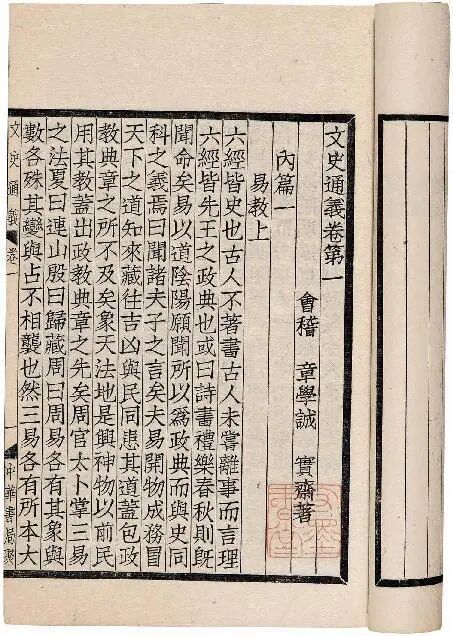 文史通義卷第一
會稽 章學誠 實齋著
內篇一
易教上
六經皆史也古人不著書古人未嘗離事而言理
六經皆先王之政典也或曰詩書禮樂春秋則旣
聞命矣易以道陰陽願聞所以爲政典而與史同
科之義焉曰聞諸夫子之言矣夫易開物成務冒
天下之道知來藏往吉凶與民同患其道蓋包政
教典章之所不及矣象天法地是興神物以前民
用其教蓋出政教典章之先矣周官太卜掌三易
之法夏曰連山殷曰歸藏周曰周易各有其象與
數各殊其變與占不相襲也然三易各有所本大
文史通義 卷一 中華書局聚